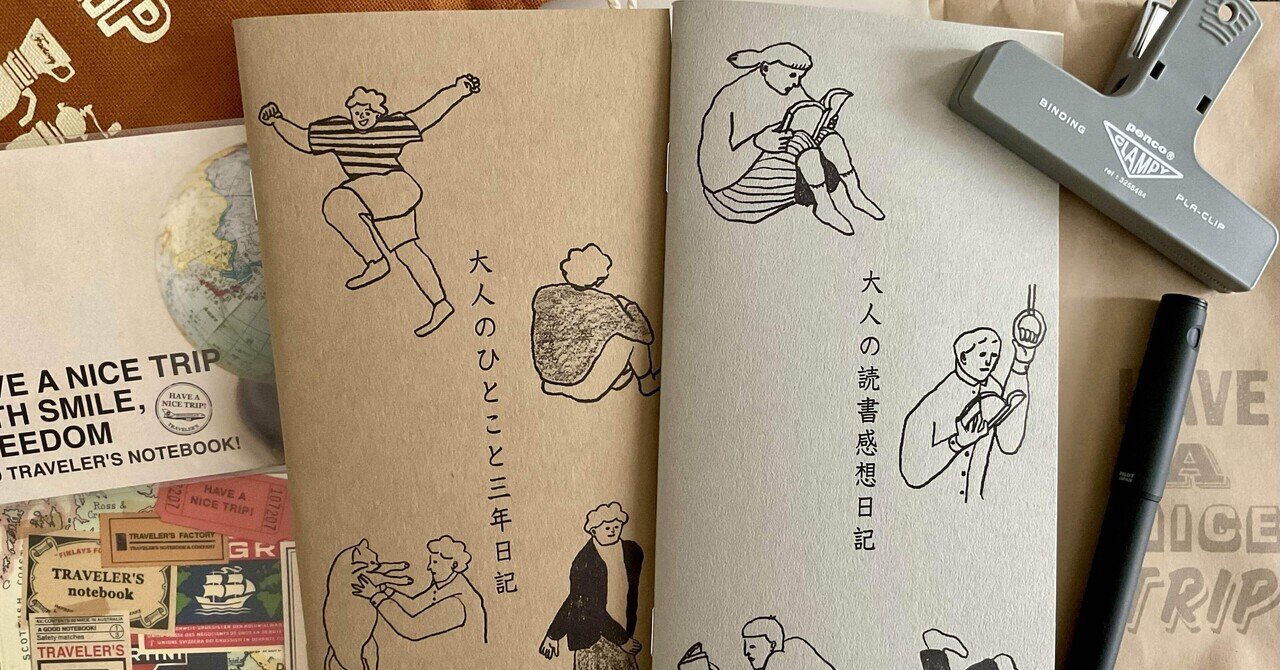 IP
Factory
VE A NICE TRIP
TH SMILE,
EEDOM
TRAVELER'S NOTEBOOK!
HAVE A
NICE TRIP!
TRAVELER'S
207
HAVE A
NICE TRIP!
107207
Ross &
TRAVELER'S FACTORY
TRAVELER'S
notebook
GR
A GOOD NOTEBOOK!
Safety matches
TRAVELER'S
大人のひとこと三年日記
大人の読書感想日記
BINDING
penco®
CLAMPY
ref : 3255484
PLA-CLIP
PILOT
JAPAN
HAVE
A
NICE
TRIP